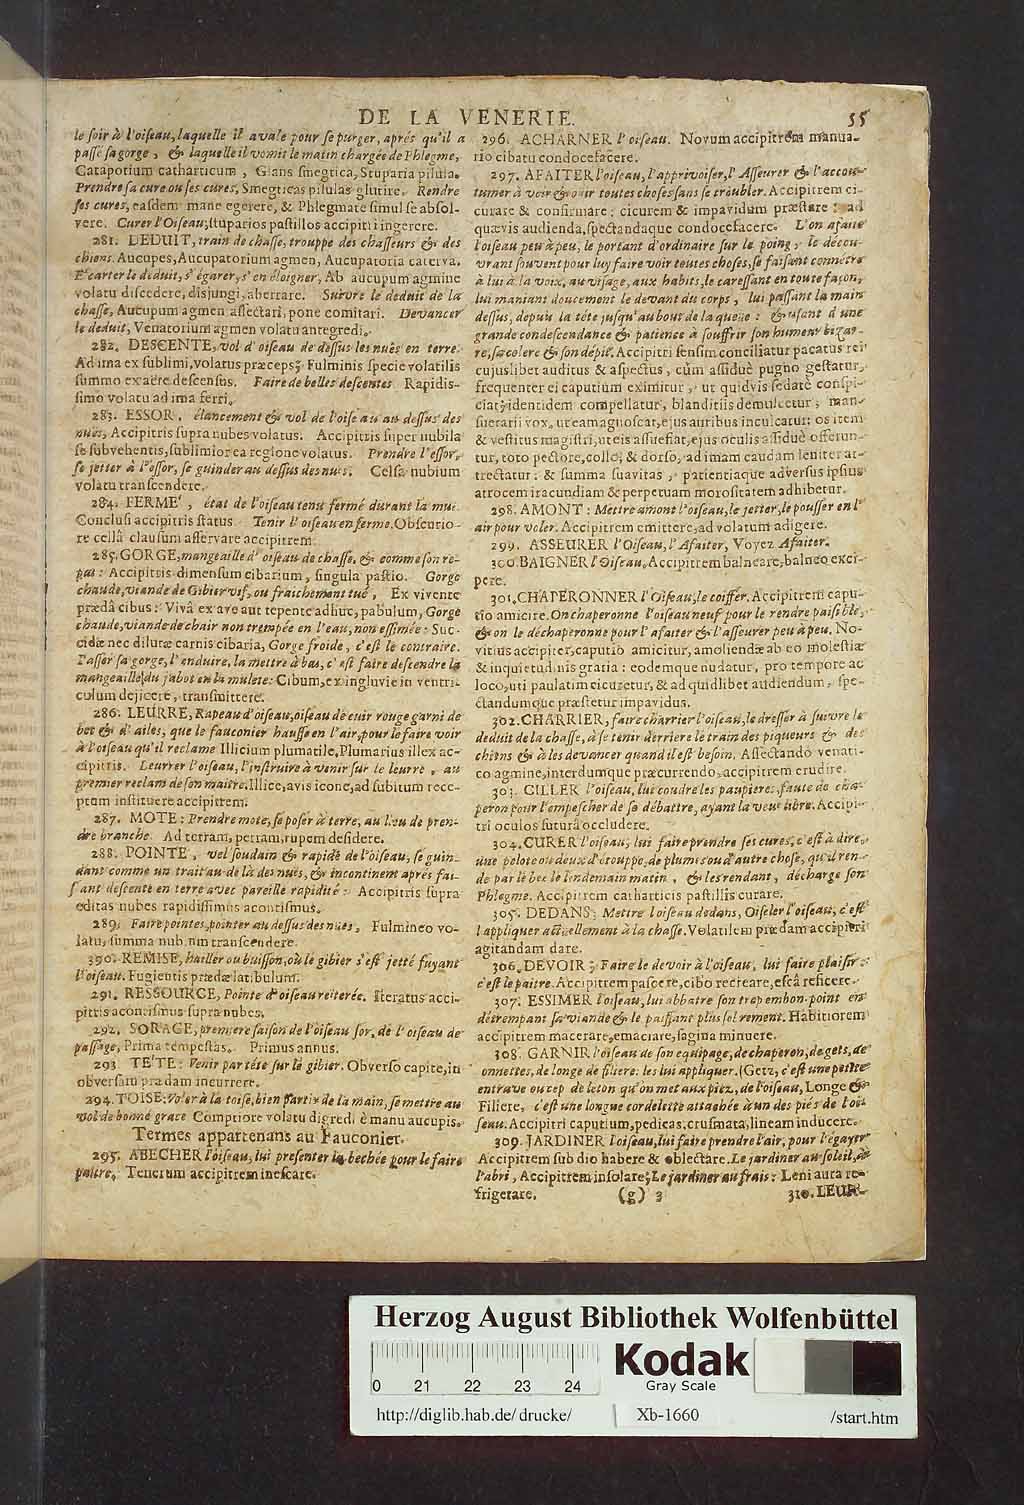 DE LA VENERIE.
55
le soir à l'oiseau, laquelle il avale pour se purger, aprés qu'il a
passé sa gorge, & laquelle il vomit le matin chargée de Phlegme,
Catapotium catharticum, Glans smegtica, Stuparia pilula.
Prendre sa cure ou ses cures, Smegticas pilulas glutire. Rendre
ses cures, easdem mane egerere, & Phlegmate simul se absol-
vere. Curer l'Oiseau, stuparios pastillos accipiti ingerere.
281. DEDUIT, train de chasse, trouppe des chasseurs & des
chiens. Aucupes, Aucupatorium agmen, Aucupatoria caterva.
Ecarter le deduit, s'égarer, s'en éloigner, Ab aucupum agmine
volatu discedere, disjungi, aberrare. Suivre le deduit de la
chasse, Aucupum agmen affectari, pone comitari. Devancer
le deduit, Venatorium agmen volatu antegredi.
282. DESCENTE, vol d'oiseau de dessus les nuës en terre.
Ad ima ex sublimi, volatus præceps; Fulminis specie volatilis
summo ex aëre descensus. Faire de belles descentes Rapidis-
simo volatu ad ima ferri.
283. ESSOR, élancement & vol de l'oiseau au dessus des
nuës, Accipitris supra nubes volatus. Accipitris super nubila
se subvehentis, sublimior ca regione volatus. Prendre l'essor,
se jetter à l'essor, se guinder au dessus des nuës. Celsa nubium
volatu transcendere.
284. FERME', état de l'oiseau tenu fermé durant la mui.
Conclusi accipitris status. Tenir l'oiseau en ferme. Obscurio-
re cellâ clausum asservare accipitrem.
285. GORGE, mangeaille d'oiseau de chasse, & comme son re-
pas: Accipitris dimensum cibarium, singula pastio. Gorge
chaude, viande de Gibier vif, ou fraichement tué, Ex vivente
prædâ cibus: Vivâ ex ave aut tepente adhuc, pabulum, Gorge
chaude, viande de chair non trempée en l'eau, non essimée: Suc-
cidæ nec dilutæ carnis cibaria, Gorge froide, c'est le contraire.
Passer sa gorge, l'enduire, la mettre à bas, c'est faire descendre la
mangeaille du jabot en la mulete: Cibum, ex ingluvie in ventri-
culum dejicere, transmittere.
286. LEURRE, Rapeau d'oiseau, oiseau de cuir rouge garni de
bec & d'ailes, que le fauconier hausse en l'air, pour le faire voir
à l'oiseau qu'il reclame Illicium plumatile, Plumarius illex ac-
cipitris. Leurrer l'oiseau, l'instruire à venir sur le leurre, au
premier reclam de son maitre. Illice, avis icone, ad subitum rece-
ptum instituere accipitrem.
287. MOTE: Prendre mote, se poser à terre, au lieu de pren-
dre branche. Ad terram, petram, rupem desidere.
288. POINTE, vol soudain & rapide de l'oiseau, se guin-
dant comme un trait au delà des nuës, & incontinent aprés fai-
sant descente en terre avec pareille rapidité: Accipitris supra
editas nubes rapidissimus acontismus.
289. Faire pointes, pointer au dessus des nuës, Fulmineo vo-
latu, summa nubium transcendere.
390. REMISE, hailler ou buisson, où le gibier s'est jetté fuyant
l'oiseau. Fugientis prædæ latibulum.
291. RESSOURCE, Pointe d'oiseau reiterée. Iteratus acci-
pitris acontismus supra nubes.
292. SORAGE, premiere saison de l'oiseau sor, de l'oiseau de
passage, Prima tempestas. Primus annus.
293. TE'TE: Venir par téte sur le gibier. Obverso capite, in
obversam prædam incurrere.
294. TOISE: Voler à la toise, bien partir de la main, se mettre au
vol de bonne grace Comptiore volatu digredi è manu aucupis.
Termes appartenans au Fauconier.
295. ABECHER l'oiseau, lui presenter la bechée pour le faire
paitre. Tenerum accipitrem inescare.
296. ACHARNER l'oiseau. Novum accipitrem manua-
rio cibatu condocefacere.
297. AFAITER l'oiseau, l'apprivoiser, l'Asseurer & l'accou-
tumer à voir & ouir toutes choses sans se troubler. Accipitrem ci-
curare & confirmare; cicurem & impavidum præstare: ad
quævis audienda, spectandaque condocefacere. L'on afaite
l'oiseau peu à peu, le portant d'ordinaire sur le poing, le décou-
vrant souvent pour luy faire voir toutes choses, se faisant connétre
à lui à la voix, au visage, aux habits, le caressant en toute façon,
lui maniant doucement le devant du corps, lui passant la main
dessus, depuis la téte jusqu'au bout de la queue: & usant d'une
grande condescendance & patience à souffrir son humeur bizar-
re, sa colere & son dépit. Accipitri sensim conciliatur pacatus rei
cujuslibet auditus & aspectus, cùm assiduè pugno gestatur,
frequenter ei caputium eximitur, ut quidvis sedatè conspi-
ciat; identidem compellatur, blanditiis demulcetur; man-
suetarii vox, ut eam agnoscat, ejus auribus inculcatur: os item
& vestitus magistri, ut eis assuefiat, ejus oculis assiduè offerun-
tur, toto pectore, collo, & dorso, ad imam caudam leniter at-
trectatur: & summa suavitas, patientiaque adversus ipsius
atrocem iracundiam & perpetuam morositatem adhibetur.
298. AMONT: Mettre amont l'oiseau, le jetter, le pousser en l'
air pour voler. Accipitrem emittere, ad volatum adigere.
299. ASSEURER l'Oiseau, l'Afaiter, Voyez Afaiter.
300. BAIGNER l'Oiseau. Accipitrem balneare, balneo exci-
pere.
301. CHAPERONNER l'Oiseau, le coiffer. Accipitrem capu-
tio amicire. On chaperonne l'oiseau neuf pour le rendre paisible,
& on le déchaperonne pour l'afaiter & l'asseurer peu à peu. No-
vitius accipiter, caputio amicitur, amoliendæ ab eo molestiæ
& inquietudinis gratia: eodemque nudatur, pro tempore ac
loco, uti paulatim cicuretur, & ad quidlibet audiendum, spe-
ctandumque præstetur impavidus.
302. CHARRIER, faire charrier l'oiseau, le dresser à suivre le
deduit de la chasse, à se tenir derriere le train des piqueurs & des
chiens & à les devancer quand il est besoin. Assectando venati-
co agmine, interdumque præcurrendo, accipitrem erudire.
303. CILLER l'oiseau, lui coudre les paupieres, faute de cha-
peron pour l'empescher de se débattre, ayant la veue libre. Accipi-
tri oculos suturâ occludere.
304. CURER l'oiseau, lui faire prendre ses cures, c'est à dire,
une pelote ou deux d'étouppe, de plumes ou d'autre chose, qu'il ren-
de par le bec le lendemain matin, & les rendant, décharge son
Phlegme. Accipitrem catharticis pastillis curare.
305. DEDANS; Mettre l'oiseau dedans, Oiseler l'oiseau, c'est
l'appliquer actuellement à la chasse. Volatilem prædam accipitri
agitandam dare.
306. DEVOIR; Faire le devoir à l'oiseau, lui faire plaisir:
c'est le paitre. Accipitrem pascere, cibo recreare, escâ reficere.
307. ESSIMER l'oiseau, lui abbatre son trop embon-point en
détrempant sa viande & le paissant plus solrement. Habitiorem
accipitrem macerare, emaciare, sagina minuere.
308. GARNIR l'oiseau de son equipage, de chaperon, de gets, de
sonnettes, de longe de filiere: les lui appliquer. (Getz, c'est une petite
entrave ou cep de leton qu'on met aux piez, de l'oiseau, Longe &
Filiere, c'est une longue cordelette attachée à un des piés de l'oi-
seau. Accipitri caputium, pedicas, crusmata, lineam inducere.
309. JARDINER l'oiseau, lui faire prendre l'air, pour l'égayer
Accipitrem sub dio habere & oblectare. Le jardiner au soleil, à
l'abri, Accipitrem insolare; Le jardiner au frais: Leni aura re-
frigerare.
(g) 3
310. LEUR-
Herzog August Bibliothek Wolfenbüttel
0 21 22 23 24
Kodak
Gray Scale
http://diglib.hab.de/ drucke/
Xb-1660
/start.htm